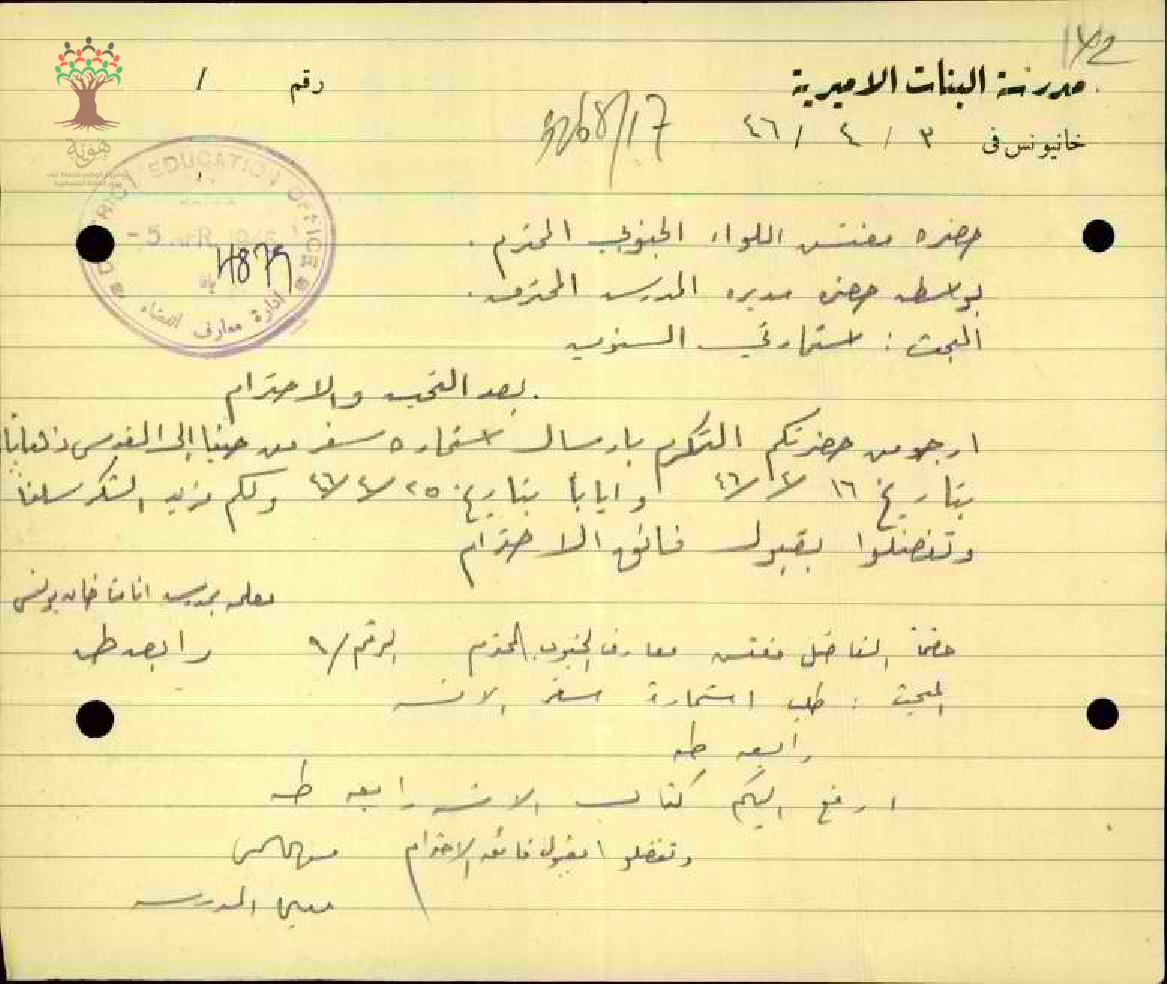 172
مدرسة البنات الاميرية
رقم /
خانيونس فى ٣ / ٤ / ٤٦
3268/17
هوية
DISTRICT EDUCATION OFFICE
-5 APR 1946
4879
ادارة معارف القضاء
حضرة مفتش اللواء الجنوبي المحترم .
بواسطة حضرة مديرة المدرسة المحترمة .
البحث : استمارتي السنوية
بعد التحية والاحترام .
ارجو من حضرتكم التكرم بارسال استمارة سفر من حيفا إلى القدس ذهاباً
بتاريخ ١٦ /٤/ ٤٦ وايابا بتاريخ ٢٥ /٤/ ٤٦ ولكم مزيد الشكر سلفاً
وتفضلوا بقبول فائق الاحترام
معلمة بمدرسة اناث خان يونس
رابعه طه
حضرة الفاضل مفتش معارف الجنوب المحترم الرقم /٩
المبحث : طلب استمارة سفر الانسة
رابعه طه
ارفع اليكم كتاب الانسة رابعه طه
وتفضلوا بقبول فائق الاحترام
المدرسة